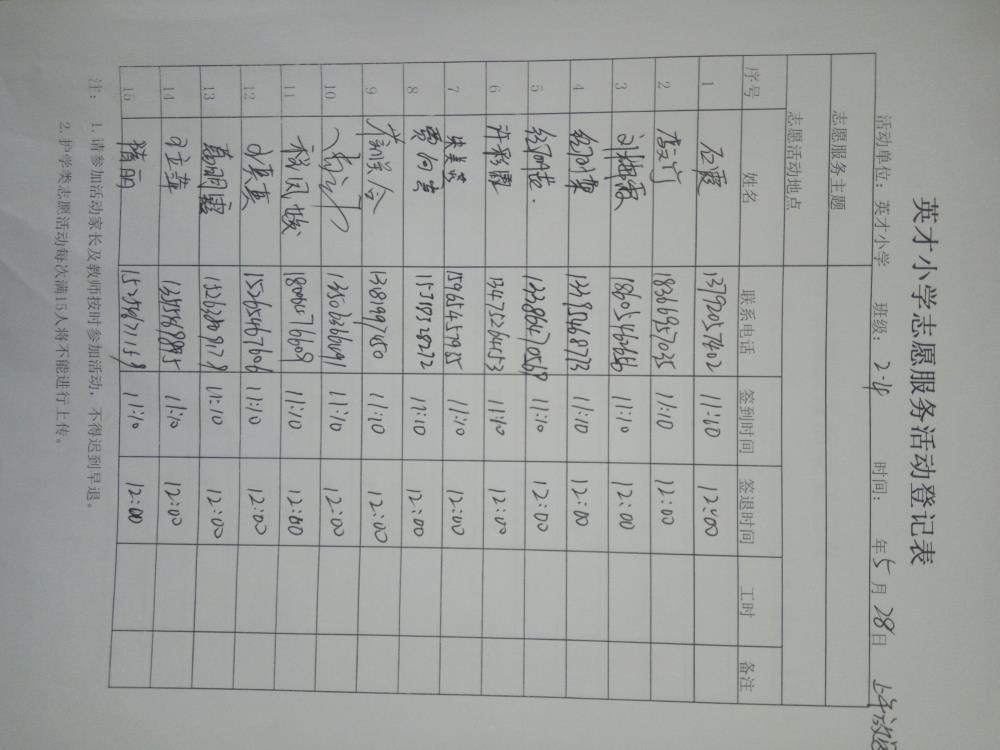 英才小学志愿服务活动登记表
活动单位：英才小学 班级：2-4 时间： 年5月28日 上午放
志愿服务主题
志愿活动地点
序号 姓名 联系电话 签到时间 签退时间 工时 备注
1 石霞 13792057402 11:10 12:00
2 18366957035 11:10 12:00
3 18605462666 11:10 12:00
4 13395468773 11:10 12:00
5 13386470569 11:10 12:00
6 许彩霞 13475264553 11:10 12:00
7 朱美英 15965459455 11:10 12:00
8 贾向贞 15315328272 11:10 12:00
9 13181997450 11:10 12:00
10 13506366691 11:10 12:00
11 程凤 18006476609 11:10 12:00
12 15265467606 11:10 12:00
13 葛明霞 11:10 12:00
14 13455688895 11:10 12:00
15 隋丽 11:10 12:00
注： 1. 请参加活动家长及教师按时参加活动，不得迟到早退。
2. 护学类志愿活动每次满15人将不能进行上传。